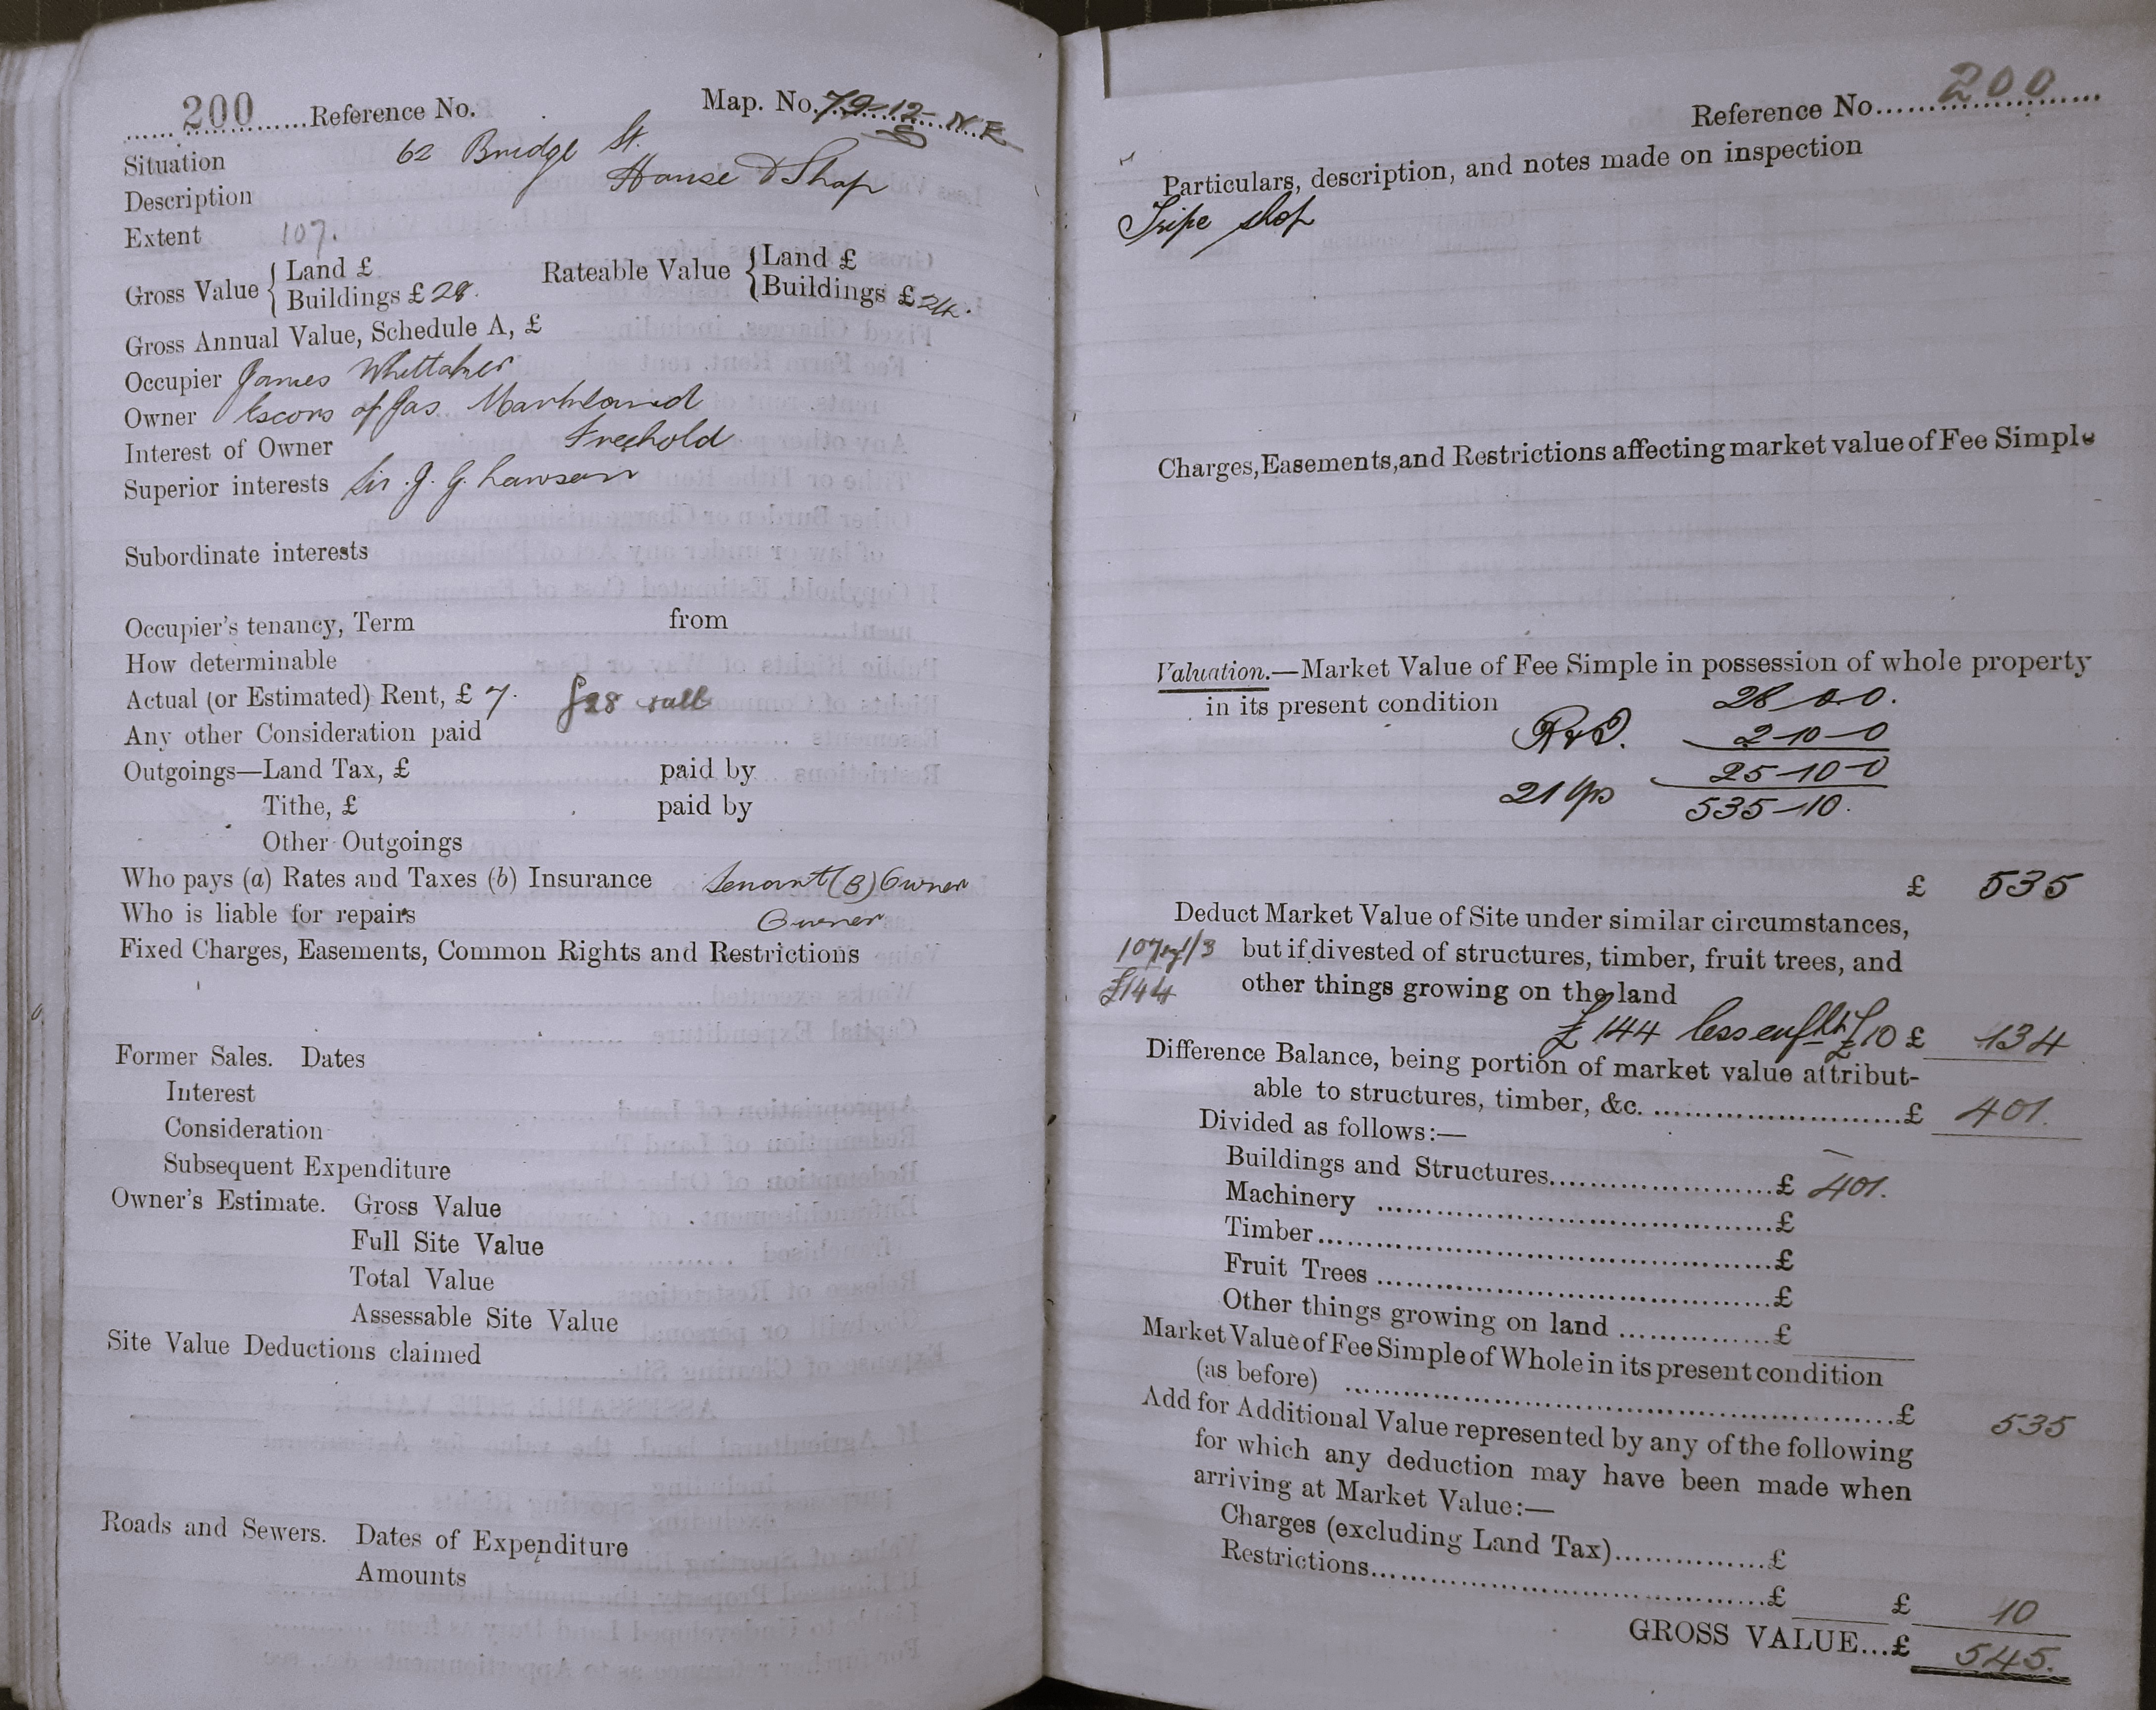 200 Reference No. Map. No. 79-12-NE
8
Situation 62 Bridge St.
Description House & Shop
Extent 107.
Gross Value { Land £
Buildings £ 28. Rateable Value { Land £
Buildings £ 24.
Gross Annual Value, Schedule A, £
Occupier James Whittaker
Owner Excors of Jas Markland
Interest of Owner Freehold
Superior interests Sir J. G. Lawson
Subordinate interests
Occupier's tenancy, Term from
How determinable
Actual (or Estimated) Rent, £ 7. £28
Any other Consideration paid
Outgoings—Land Tax, £ paid by
Tithe, £ paid by
Other Outgoings
Who pays (a) Rates and Taxes (b) Insurance Tenant (B) Owner
Who is liable for repairs Owner
Fixed Charges, Easements, Common Rights and Restrictions
Former Sales. Dates
Interest
Consideration
Subsequent Expenditure
Owner's Estimate. Gross Value
Full Site Value
Total Value
Assessable Site Value
Site Value Deductions claimed
Roads and Sewers. Dates of Expenditure
Amounts
Reference No. 200
Particulars, description, and notes made on inspection
Tripe shop
Charges, Easements, and Restrictions affecting market value of Fee Simple
Valuation.—Market Value of Fee Simple in possession of whole property
in its present condition 28 0 0.
2 10-0
25-10-0
21 yps 535-10.
£ 535
Deduct Market Value of Site under similar circumstances,
107 @ 1/3 but if divested of structures, timber, fruit trees, and
£144 other things growing on the land
£144 less £10 £ 134
Difference Balance, being portion of market value attribut-
able to structures, timber, &c. £ 401.
Divided as follows:—
Buildings and Structures £ 401.
Machinery £
Timber £
Fruit Trees £
Other things growing on land £
Market Value of Fee Simple of Whole in its present condition
(as before) £ 535
Add for Additional Value represented by any of the following
for which any deduction may have been made when
arriving at Market Value:—
Charges (excluding Land Tax) £
Restrictions £ £ 10
GROSS VALUE...£ 545.